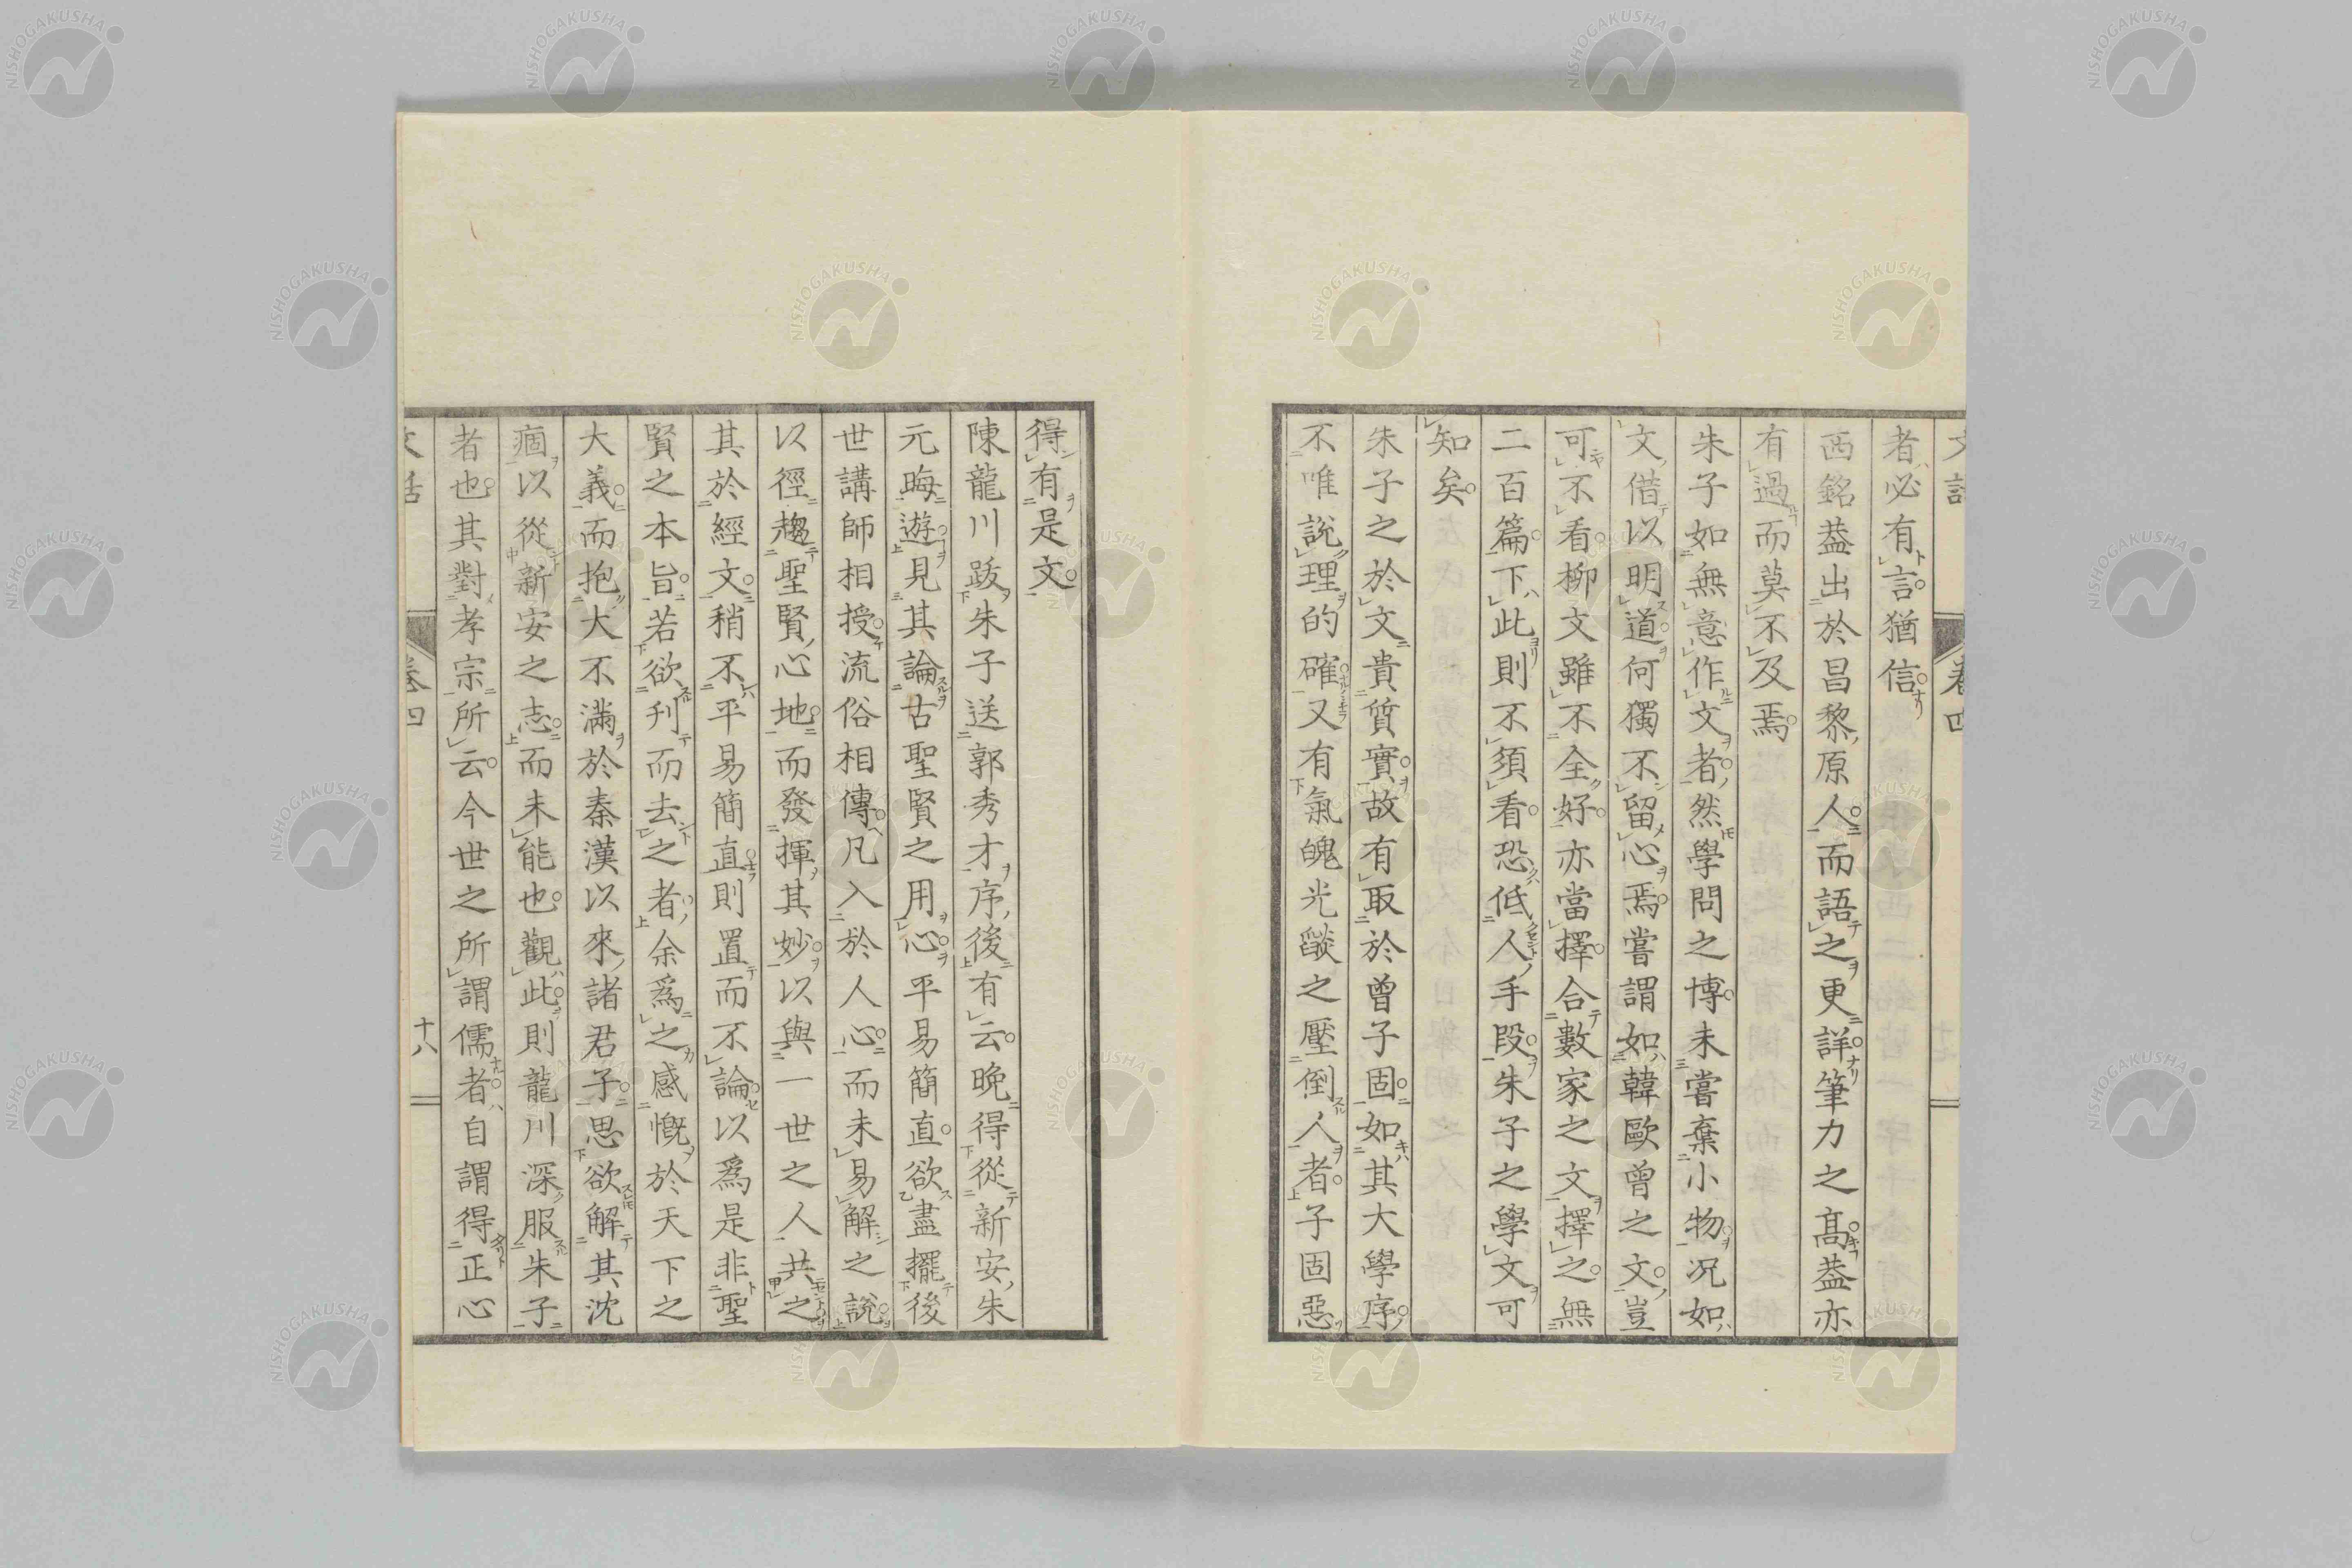 者必有言猶信
西銘葢出於昌黎原人而語之更詳筆力之高葢亦
有過而莫不及焉
朱子如無意作文者然學問之博未嘗棄小物況如
文借以明道何獨不留心焉嘗謂如韓歐曾之文豈
可不看柳文雖不全好亦當擇合數家之文擇之無
二百篇下此則不須看恐低人手段朱子之學文可
知矣
朱子之於文貴質實故有取於曾子固如其大學序
不唯說理的確又有氣魄光燄之壓倒人者子固惡
得有是文
陳龍川跋朱子送郭秀才序後有云晚得從新安朱
元晦遊見其論古聖賢之用心平易簡直欲盡擺後
世講師相授流俗相傳凡入於人心而未易解之說
以徑趨聖賢心地而發揮其妙以與一世之人共之
其於經文稍不平易簡直則置而不論以爲是非聖
賢之本旨若欲刋而去之者余爲之感慨於天下之
大義而抱大不滿於秦漢以來諸君子思欲解其沈
痼以從新安之志而未能也觀此則龍川深服朱子
者也其對孝宗所云今世之所謂儒者自謂得正心
文話
卷四
十八
NISHOGAKUSHA